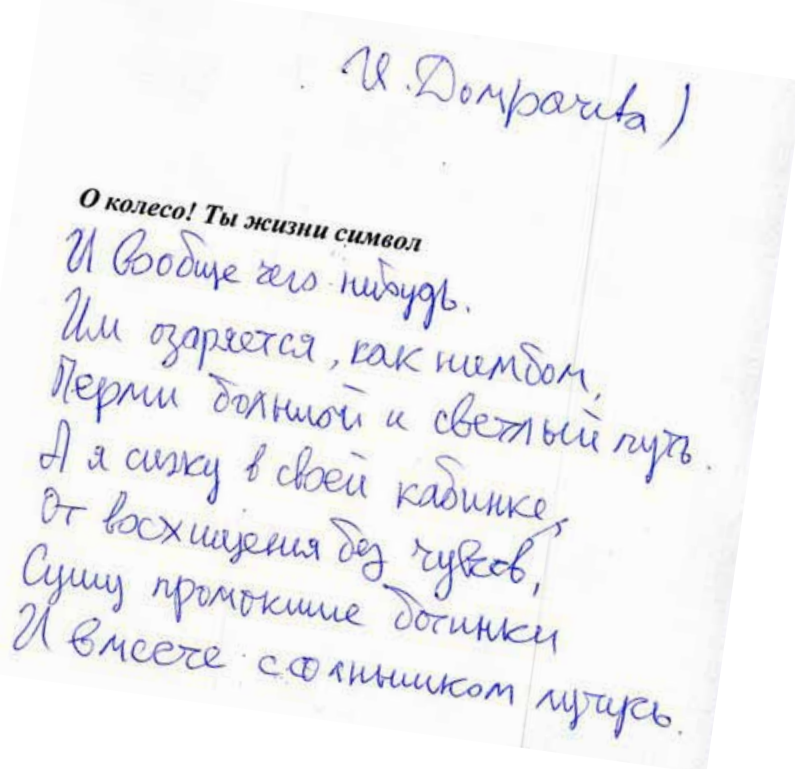 И. Домрачева)
О колесо! Ты жизни символ
И вообще чего нибудь.
Им озаряется, как нимбом,
Перми большой и светлый путь.
А я сижу в своей кабинке,
От восхищения без чувств,
Сушу промокшие ботинки
И вместе с солнышком лучусь.